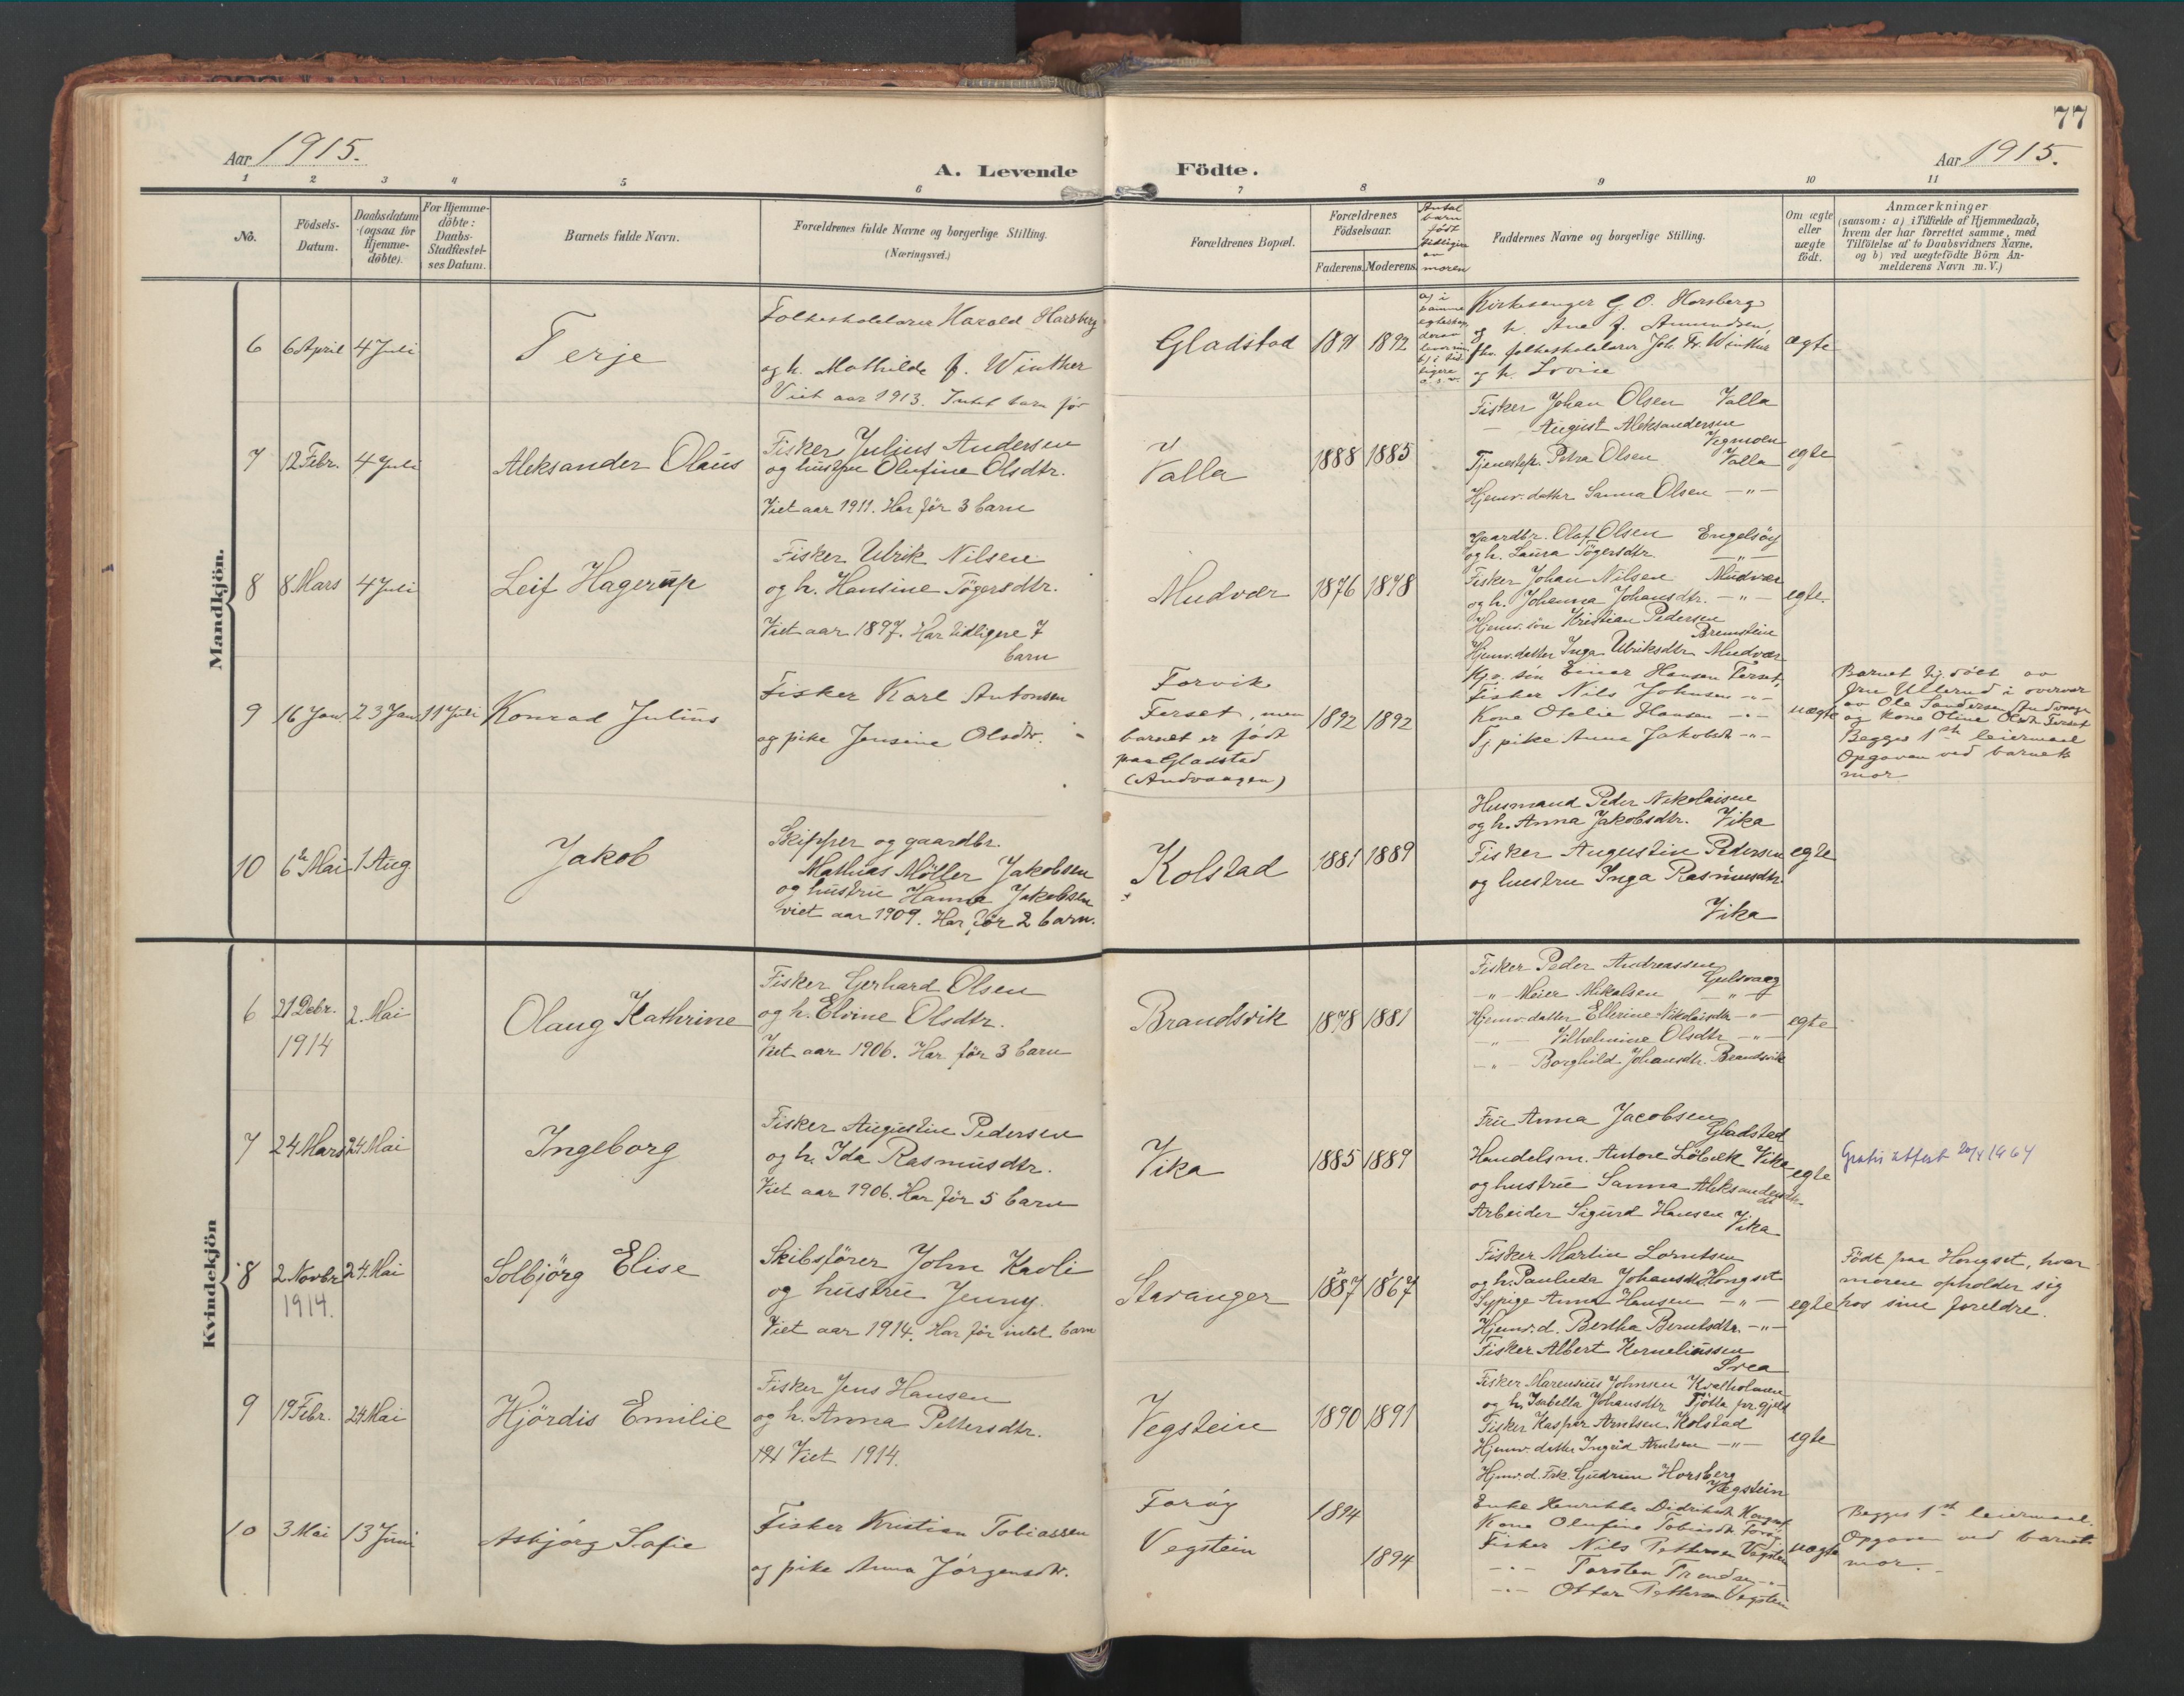 77
Aar 1915.
A. Levende Födte.
Aar 1915.
1 2 3 4 5 6 7 8 9 10 11
No.
Födsels-
Datum.
Daabsdatum
(ogsaa for
Hjemme-
döbte).
For Hjemme-
döbte:
Daabs-
Stadfæstel-
ses Datum.
Barnets fulde Navn.
Forældrenes fulde Navne og borgerlige Stilling.
(Næringsvei.)
Forældrenes Bopæl.
Forældrenes
Födselsaar.
Faderens. Moderens.
Antal
barn
født
tidligere
av
moren
Faddernes Navne og borgerlige Stilling.
Om ægte
eller
uægte
födt.
Anmærkninger
(saasom: a) i Tilfælde af Hjemmedaab,
hvem der har forrettet samme, med
Tilföielse af to Daabsvidners Navne,
og b) ved uægtefödte Börn An-
melderens Navn m. V.)
Mandkjön.
6 6 April 4 Juli
Terje
Folkeskolelærer Harald Horsberg
og h. Mathilde f. Winther
Viet aar 1913. Intet barn før
Gladstad
1891 1892
a) i
samme
egteskap
derav
b) i tid-
ligere
Kirkesanger G. O. Horsberg
og h. Ane f. Amundsen,
fhv. folkeskolelærer Joh. Fr. Winther
og h. Lovise
ægte
7 12 Febr. 4 Juli
Aleksander Olaus
Fisker Julius Andersen
og hustru Olufine Olsdtr.
Viet aar 1911. Har før 3 barn
Valla
1888 1885
Fisker Johan Olsen Valla
— August Aleksandersen
Vegmoen
Tjenestep. Petra Olsen Valla
Hjemv. datter Sanna Olsen —"—
egte
8 8 Mars 4 Juli
Leif Hagerup
Fisker Ulrik Nilsen
og h. Hansine Tögersdtr.
Viet aar 1897. Har tidligere 7
barn
Mudvær
1876 1878
Gaardbr. Olaf Olsen Engelsöy
og h. Laura Tögersdtr. —"—
Fisker Johan Nilsen Mudvær
og h. Johanna Johansdtr. —"—
Hjemv. sön Kristian Pedersen
Bremstein
Hjemv. datter Inga Ulriksdtr. Mudvær
egte.
9 16 Jan. 23 Jan. 11 Juli
Konrad Julius
Fisker Karl Antonsen
og pike Jensine Olsdtr.
Forvik
Ferset, men
barnet er født
paa Gladstad
(Andvaagen)
1892 1892
Hjv. sön Einar Hansen Ferset,
Fisker Nils Johnsen —"—
Kone Otelie Hansen —"—
Tj. pike Anna Jakobsdtr. —"—
uægte
Barnet hj.döbt av
Fru Ullerud i overvær
av Ole Sandersen Andvaage
og kone Oline Olsdtr. Ferset
Begges 1ste leiermaal
Opgaven ved barnets
mor
10 6te Mai 1 Aug
Jakob
Skipper og gaardbr.
Mathias Möller Jakobsen
og hustru Hanna Jakobsen
viet aar 1909. Har før 2 barn.
Kolstad
1881 1889
Husmand Peder Nikolaisen
og h. Anna Jakobsdtr. Vika
Fisker Augustin Pedersen
og hustru Inga Rasmusdtr.
Vika
egte
Kvindekjön
6 21 Debr.
1914
2. Mai
Olaug Kathrine
Fisker Gerhard Olsen
og h. Elvine Olsdtr.
Viet aar 1906. Har før 3 barn
Brandsvik
1878 1881
Fisker Peder Andreassen
Gulsvaag
—"— Meier Mikalsen —"—
Hjemv. datter Ellerine Nikolaisdtr. —"—
—"— Vilhelmine Olsdtr. —"—
—"— Borghild Johansdtr. Brandsvik
egte
7 24 Mars 24. Mai
Ingeborg
Fisker Augustin Pedersen
og h. Ida Rasmusdtr.
Viet aar 1906. Har før 5 barn
Vika
1885 1889
Fru Anna Jacobsen
Gladstad
Handelsm. Antore Löbæk Vika
og hustru Sanna Aleksandersdtr.
Arbeider Sigurd Hansen
Vika
egte
Gratis attest 20/4 1964
8 2 Novbr
1914.
24. Mai
Solbjörg Elise
Skibsförer John Kavli
og hustru Jenny.
Viet aar 1914. Har før intet barn
Stavanger
1887 1867
Fisker Martin Lorntsen
og h. Paulida Johansdtr. Hongset
Sypige Anna Hansen —"—
Hjemv. d. Bertha Berntsdtr. —"—
Fisker Albert Korneliussen
Svea
egte
Födt paa Hongset, hvor
moren opholder sig
hos sine foreldre.
9 19 Febr. 24. Mai
Hjördis Emilie
Fisker Jens Hansen
og h. Anna Pettersdtr.
Viet 1914.
Vegstein
1890 1891
Fisker Marensius Johnsen Kvalholmen
og h. Isabella Johansdtr Tjötta pr.gjeld
Fisker Kaspar Arntsen Kolstad
Hjemv. datter Ingrid Arntsen —"—
Hjemv. d. Frk. Gudrun Horsberg
Vegstein
egte
10 3 Mai 13 Juni
Asbjørg Sofie
Fisker Kristian Tobiassen
og pike Anna Jørgensdtr.
Forøy
Vegstein
1894
1894
Enke Henrikke Didriksdtr. Hongset
Kone Olufine Tobiasdtr. Forøy
Fisker Nils Pettersen Vegstein
—"— Torsten Trondsen —"—
—"— Ottar Pettersen Vegstein
uægte
Begges 1ste leiermaal.
Opgaven ved barnets
mor.